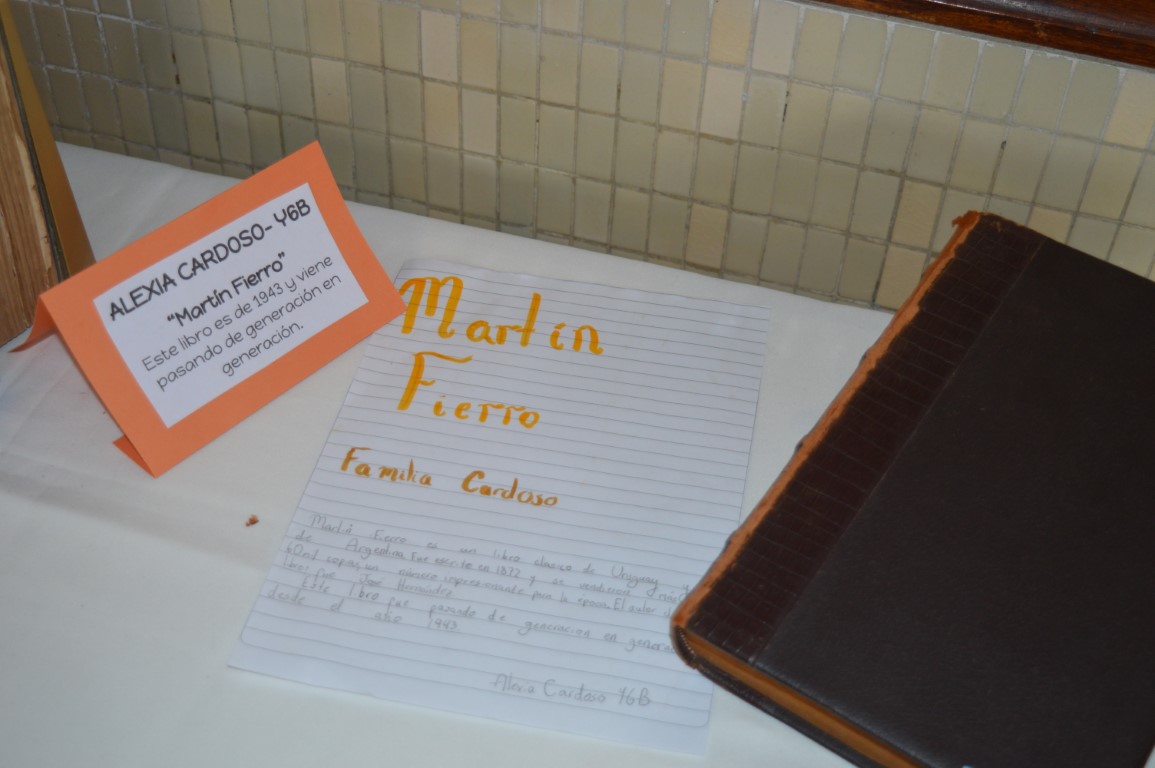 ALEXIA CARDOSO- Y6B
"Martín Fierro"
Este libro es de 1943 y viene
pasando de generación en
generación.
Martín
Fierro
Familia Cardoso
Martín Fierro es un libro clásico de Uruguay
de Argentina. Fue escrito en 1872 y se vendieron
60mil copias, un número impresionante para la época. El autor
libro fue José Hernández
Este libro fue pasando de generación en
desde el año 1943
Alexia Cardoso Y6B